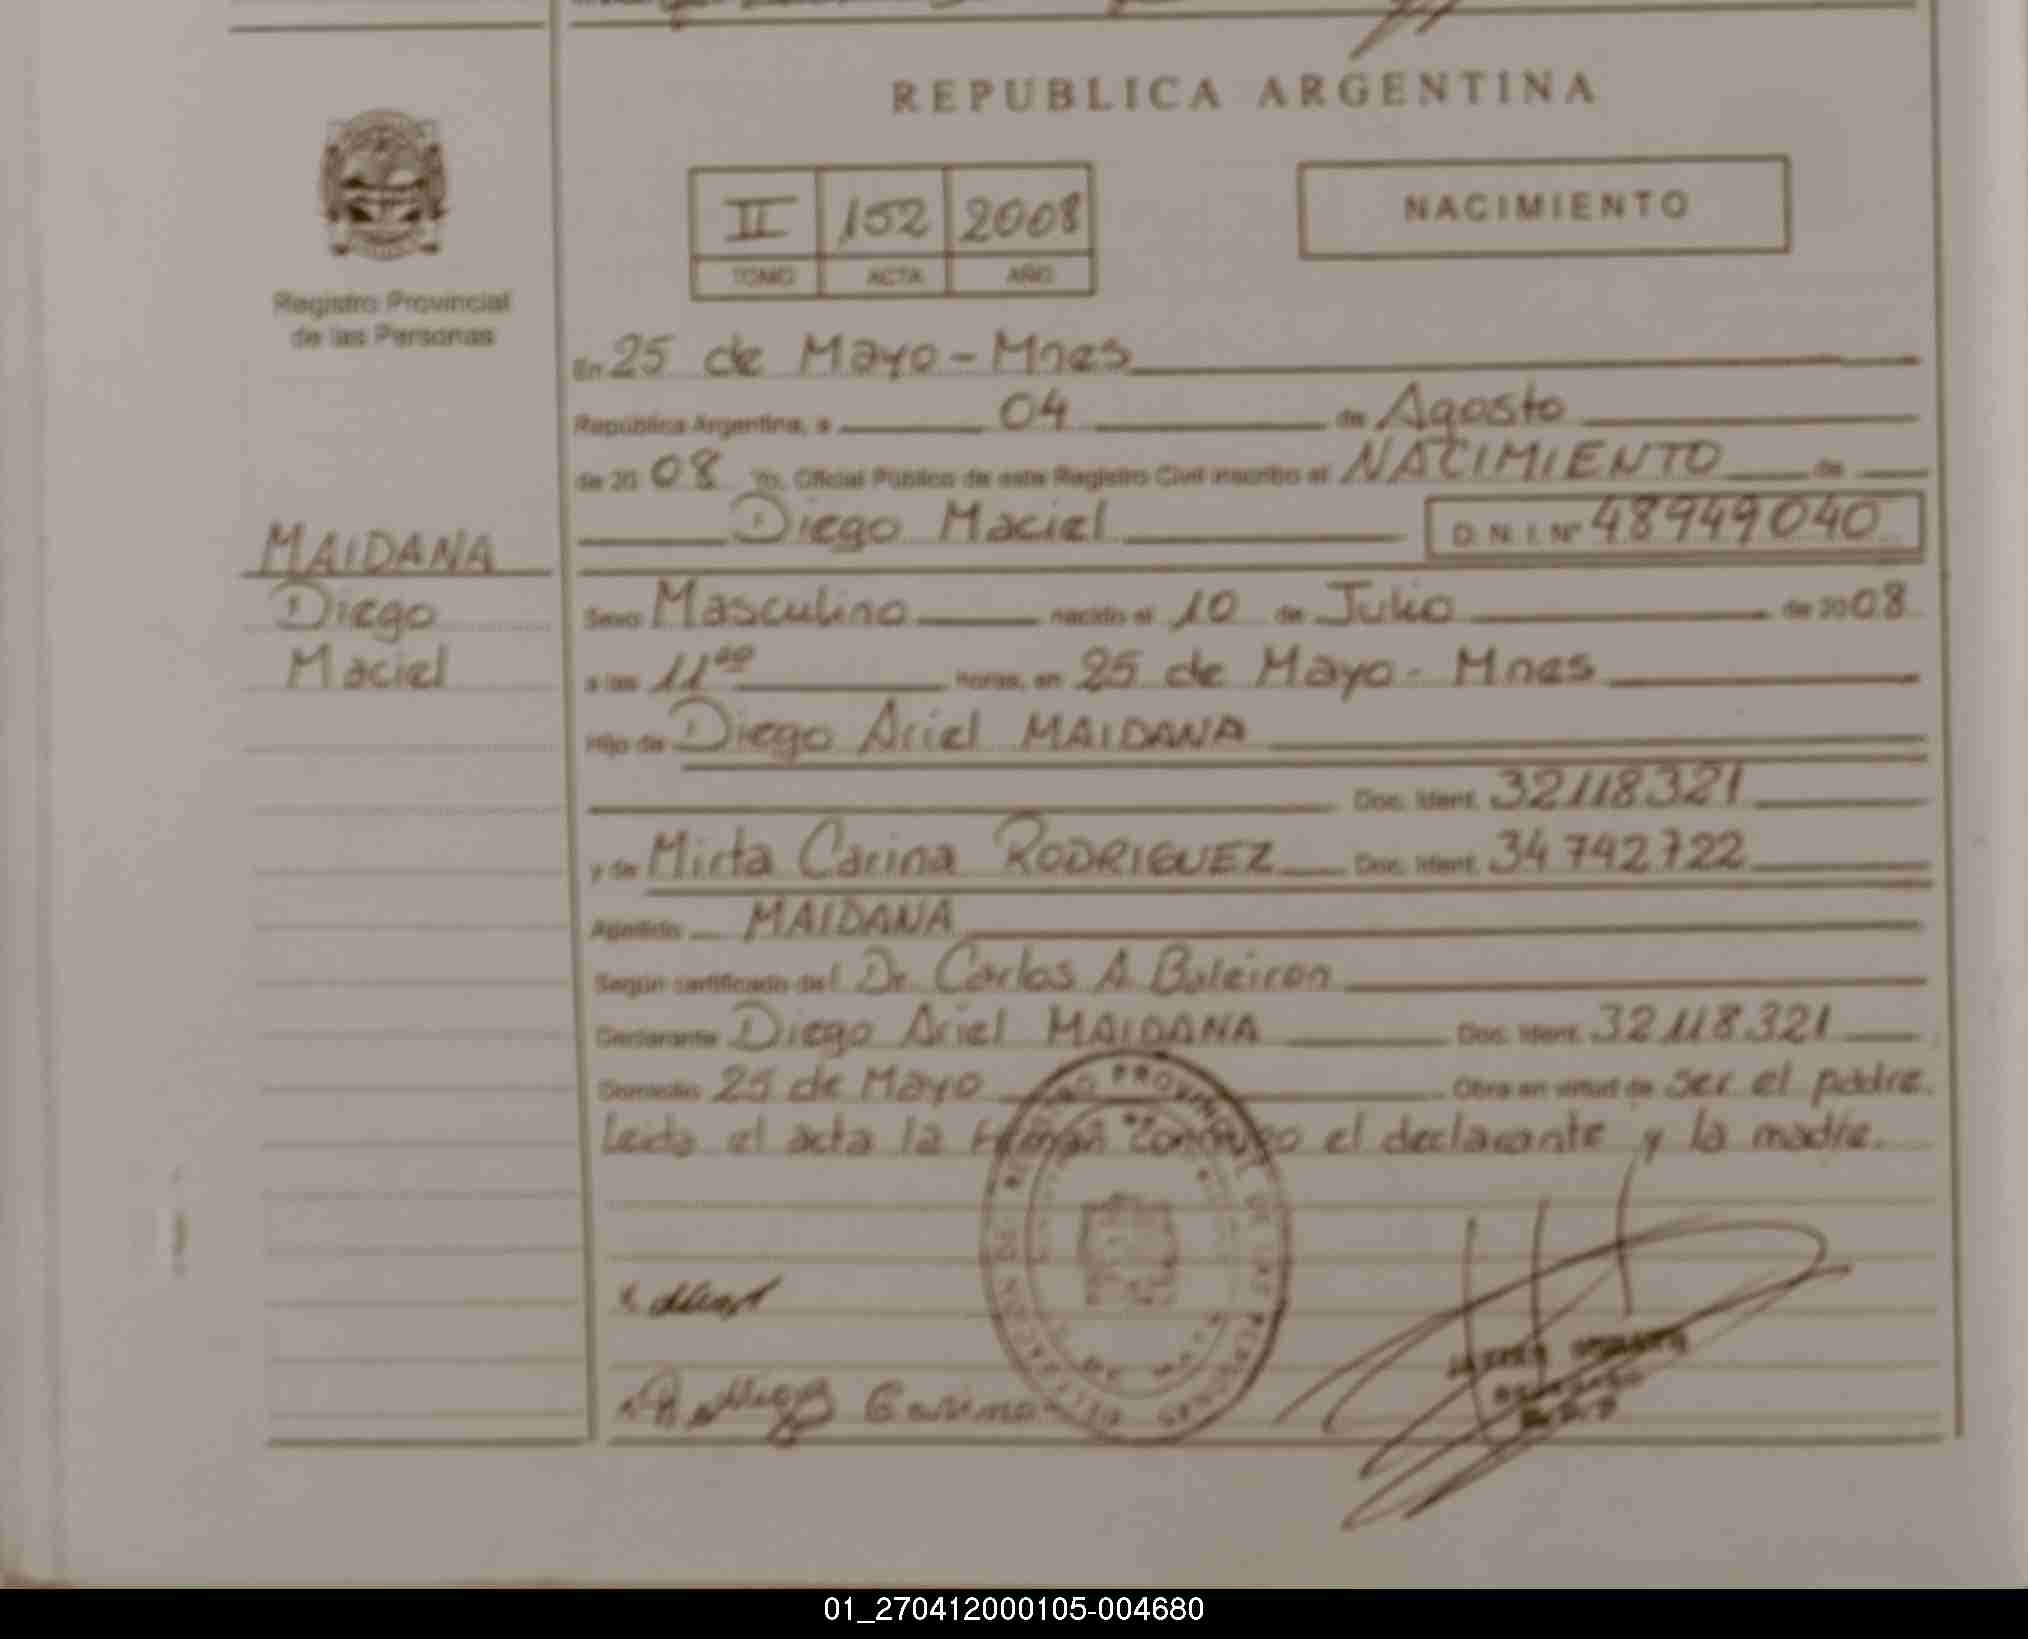 REPUBLICA ARGENTINA
II 152 2008
TOMO ACTA AÑO
NACIMIENTO
Registro Provincial
de las Personas
MAIDANA
Diego
Maciel
En 25 de Mayo - Mnes
República Argentina, a 04 de Agosto
de 2008 Yo, Oficial Público de este Registro Civil inscribo el NACIMIENTO de
Diego Maciel D. N. I. Nº 48949040
Sexo Masculino nacido el 10 de Julio de 2008
a las 11⁰⁰ horas, en 25 de Mayo - Mnes
Hijo de Diego Ariel MAIDANA
Doc. Ident. 32118321
y de Mirta Carina RODRIGUEZ Doc. Ident. 34742722
Apellido MAIDANA
Según certificado del Dr. Carlos A. Baleiron
Declarante Diego Ariel MAIDANA Doc. Ident. 32118321
Domicilio 25 de Mayo Obra en virtud de ser el padre.
Leida el acta la firman conmigo el declarante y la madre.
PROVINCIAL DE LAS PERSONAS
01_270412000105-004680